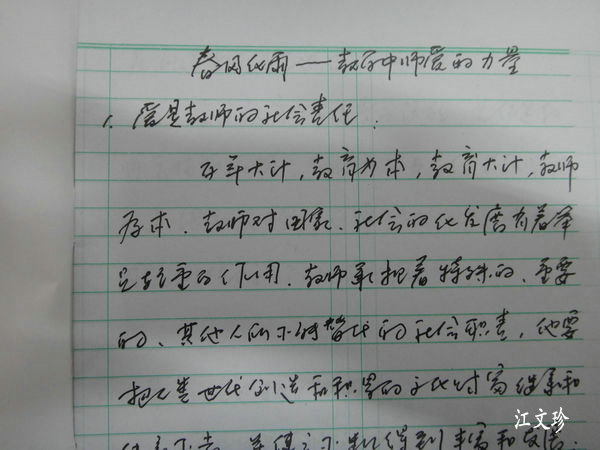 春风化雨——教育中师爱的力量
1、爱是教师的社会责任.
百年大计,教育为本,教育大计,教师
为本.教师对国家、社会的化发展有着举
足轻重的作用.教师承担着特殊的、重要
的、其他人所不能替代的社会职责,他要
把人类世代创造和积累的文化财富继承和
得到丰富和发展.
江文珍